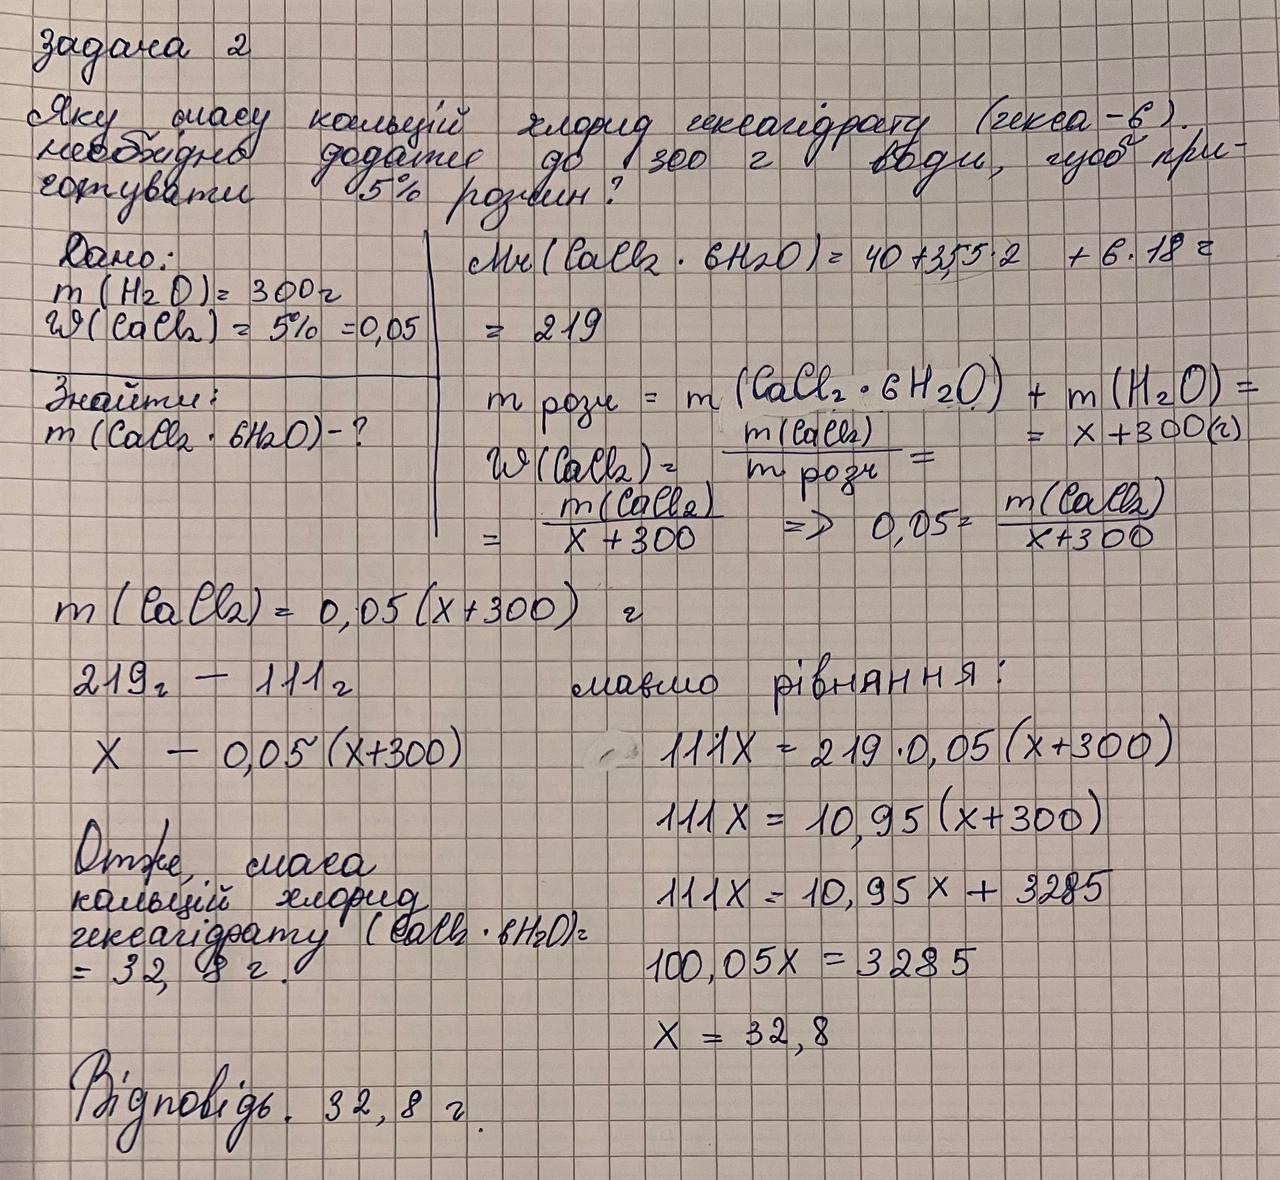 Задача 2
Яку масу кальцій хлорид гексагідрату (гекса - 6).
необхідно додати до 300 г води, щоб при-
готувати 5% розчин?
Дано:
m (H2O) = 300г
W (CaCl2) = 5% = 0,05
Знайти:
m (CaCl2 · 6H2O) - ?
Mr (CaCl2 · 6H2O) = 40 + 35,5 · 2 + 6 · 18 =
= 219
m розч = m (CaCl2 · 6H2O) + m (H2O) =
= x + 300(г)
W (CaCl2) = m (CaCl2) / m розч =
= m (CaCl2) / x + 300 => 0,05 = m (CaCl2) / x + 300
m (CaCl2) = 0,05 (x + 300) г
219г — 111г
x — 0,05 (x+300)
маємо рівняння:
111x = 219 · 0,05 (x + 300)
111x = 10,95 (x + 300)
111x = 10,95x + 3285
100,05x = 3285
x = 32,8
Отже, маса
кальцій хлорид
гексагідрату (CaCl2 · 6H2O) =
= 32,8 г.
Відповідь. 32,8 г.